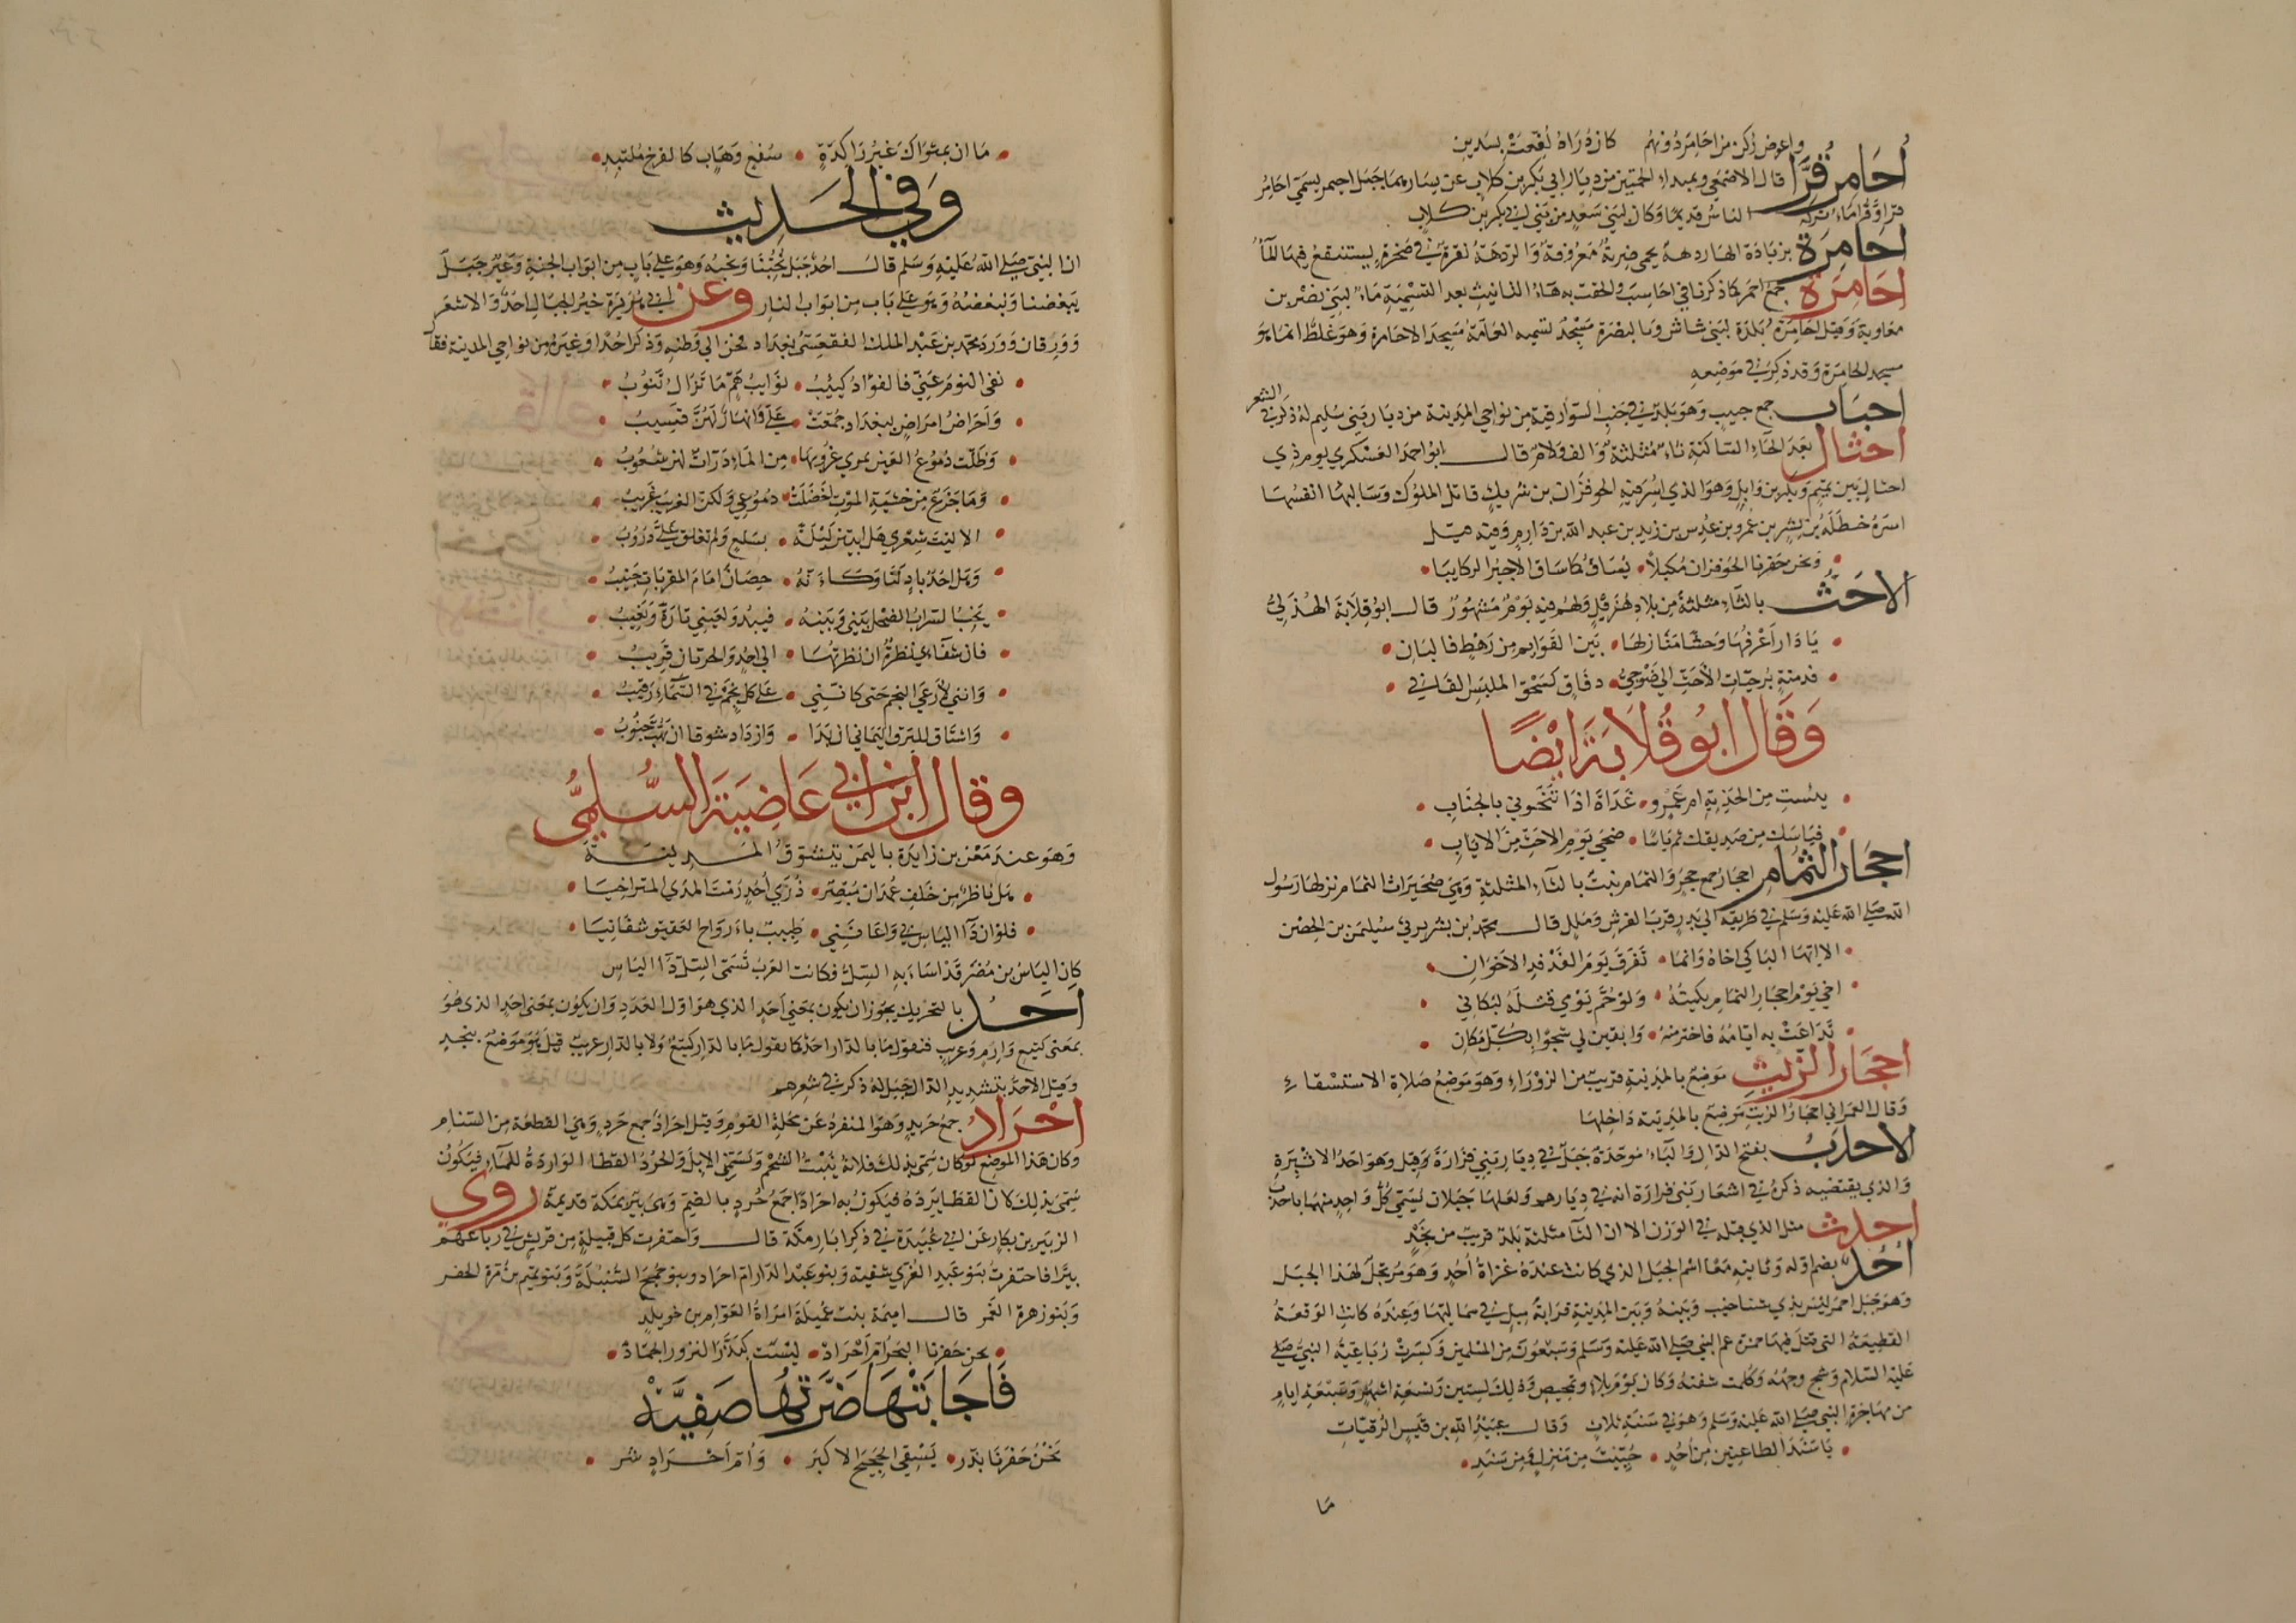 واعرض ركن من احامر دونهم كان ذراه لفعت بسدين
أحامر قرا قال الاصمعي ومبدا الحمتين من ديار ابي بكر بن كلاب عن يسارهما جبل احمر يسمى احامر
قرا وقرا ماء نزله الناس قديما وكان لبني سعد من بني ابي بكر بن كلاب
احامرة بزيادة الهاء ردهة بحمى ضرية معروفة والردهة نقرة في صخرة يستنقع فيها الماء
احامرة جمع احمر كما ذكرنا في احاسب والحقت به هاء التانيث بعد التسمية ماء لبني نصر بن
معاوية وقيل احامرة بلدة لبني شاش وبالبصرة مسجد تسميه العامة مسجد الاحامرة وهو غلط انما هو
مسجد الحامرة وقد ذكر في موضعه
احباب جمع حبيب وهو بلد في جنب السوارقية من نواحي المدينة من ديار بني سليم له ذكر في الشعر
احثال بعد الحاء الساكنة ثاء مثلثة والف ولام قال ابو احمد العسكري يوم ذي
احثال بين تميم وبكر بن وايل وهو الذي اسر فيه الحوفزان بن شريك قاتل الملوك وسالبها انفسها
اسره حنظلة بن بشر بن عمرو بن عدس بن زيد بن عبد الله بن دارم وفيه قيل
ونحن حفزنا الحوفزان مكبلا • يساق كما ساق الاجير الركايبا
الاحث بالثاء مثلثة من بلاد هذيل ولهم فيه يوم مشهور قال ابو قلابة الهذلي
يا دار اعرفها وحشا منازلها • بين القوايم من رهط فالبان
فدمنة برحيات الاحث الى ضوجي • دفاق كسحق الملبس الفاني
وقال ابو قلابة ايضا
يئست من الحذية ام عمرو • غداة اذا تنخوني بالجناب
فياسك من صديقك ثم ياسا • ضحى يوم الاحث من الاياب
احجار الثمام احجار جمع حجر والثمام نبت بالثاء المثلثة وهي صخيرات الثمام نزلها رسول
الله صلى الله عليه وسلم في طريقه الى بدر قرب الفرش وملل قال محمد بن بشير يرثي سليمن بن الحصين
الا ايها الباكي اخاه وانما • تفرق يوم الفدفد الاخوان
اخي يوم احجار الثمام بكيته • ولو حم يومي قبله لبكاني
تداعت به ايامه فاخترمنه • وابقين لي شجوا بكل مكان
احجار الزيت موضع بالمدينة قريب من الزوراء وهو موضع صلاة الاستسقاء
وقال العمراني احجار الزيت موضع بالمدينة داخلها
الاحدب بفتح الدال والباء موحدة جبل في ديار بني فزارة وقيل هو احد الاثبرة
والذي يقتضيه ذكره في اشعار بني فزارة انه في ديارهم ولعلها جبلان يسمى كل واحد منهما باحدب
احدث مثل الذي قبله في الوزن الا ان الثا مثلثة بلد قريب من نجد
احد بضم اوله وثانيه معا اسم الجبل الذي كانت عنده غزاة أحد وهو مرتجل لهذا الجبل
وهو جبل احمر ليس بذي شناخيب وبينه وبين المدينة قرابة ميل في شماليها وعنده كانت الوقعة
الفظيعة التي قتل فيها حمزة عم النبي صلى الله عليه وسلم وسبعون من المسلمين وكسرت رباعية النبي صلى
عليه السلام وشج وجهه وكلمت شفته وكان يوم بلاء وتمحيص وذلك لسنتين وتسعة اشهر وسبعة ايام
من مهاجرة النبي صلى الله عليه وسلم وهو في سنة ثلاث وقال عبيد الله بن قيس الرقيات
يا سند الظاعنين من أحد • حييت من منزل ومن سند
ما
ما ان بمثواك غير راكدة • سفع وهاب كالفرخ ملتبد
وفي الحديث
ان النبي صلى الله عليه وسلم قال احد جبل يحبنا ونحبه وهو على باب من ابواب الجنة وعير جبل
يبغضنا ونبغضه وهو على باب من ابواب النار وعن ابي هريرة خير الجبال احد والاشعر
وورقان وورد محمد بن عبد الملك الفقعسي بغداد فحن الى وطنه وذكر احدا وغيره من نواحي المدينة فقال
نفى النوم عني فالفواد كئيب • نوايب هم ما تزال تنوب
واحراض امراض ببغداد جمعت • علي وانهار لهن قسيب
وظلت دموع العين تمري غروبها • من الماء درات لهن شعوب
وما جزع من خشية الموت اخضلت • دموعي ولكن الغريب غريب
الا ليت شعري هل ابيتن ليلة • بسلع ولم تغلق علي دروب
وهل احد باد لنا وكانه • حصان امام المقربات جنيب
يخب السراب الضحل بيني وبينه • فيبدو لعيني تارة ويغيب
فان شفائي نظرة ان نظرتها • الى احد والحرتان قريب
وانني لارعى النجم حتى كانني • على كل نجم في السماء رقيب
واشتاق للبرق اليماني ان بدا • وازداد شوقا ان تهب جنوب
وقال ابن ابي عاصية السلمي
وهو عند معن بن زايدة باليمن يتشوق المدينة
هل ناظر من خلف غمدان مبصر • ذرى أحد رمت المدى المتراخيا
فلو ان دآ الياس بي واعانني • طبيب باءرواح العقيق شفانيا
كان الياس بن مضر قد اصابه السل فكانت العرب تسمى السل دآ الياس
احد بالتحريك يجوز ان يكون بمعنى احد الذي هو اول العدد وان يكون بمعنى احد الذي هو
بمعنى كتيع وارم وعريب فتقول ما بالدار احد كما تقول ما بالدار كتيع ولا بالدار عريب قيل هو موضع بنجد
وقيل الاحد بتشديد الدال جبل له ذكر في شعرهم
احراد جمع حريد وهو المنفرد عن محلة القوم وقيل احراد جمع حرد وهي القطعة من السنام
وكان هذا الموضع لو كان سمي بذلك فلانه ينبت الشحم ويسمن الابل والحرد القطا الواردة للماء فيكون
سمي بذلك لان القطا يرده فيكون به احرادا جمع حرد بالضم وهي بئر بمكة قديمة روى
الزبير بن بكار عن ابي عبيدة في ذكر ابار مكة قال واحتفرت كل قبيلة من قريش في رباعهم
بيرا فاحتفرت بنو عبد العزى شفية وبنو عبد الدار ام احراد وبنو جمح السنبلة وبنو تميم بن مرة الجفر
وبنو زهرة الغمر قال اميمة بنت عميلة امراة العوام بن خويلد
نحن حفرنا البحر ام احراد • ليست كبذر النزور الجماد
فاجابتها ضرتها صفية
نحن حفرنا بذر • يسقي الحجيج الاكبر • وام احراد شر